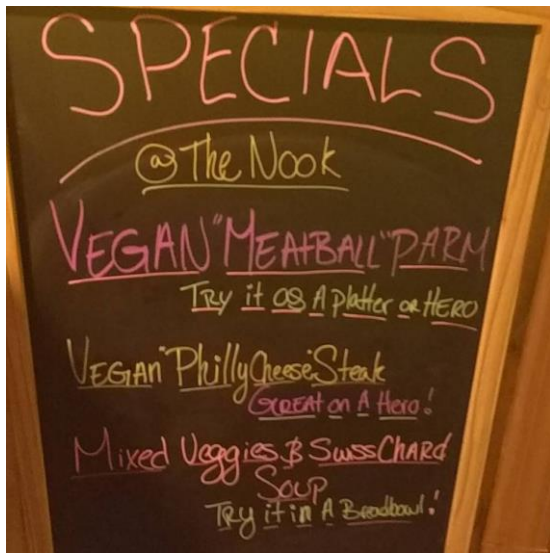 SPECIALS
@ The Nook
VEGAN "MEATBALL" PARM
Try it as A Platter or HERO
VEGAN "Philly Cheese" Steak
GREAT on A Hero!
Mixed Veggies & Swiss Chard
Soup
Try it in A Breadbowl!